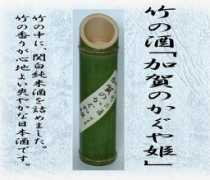 竹の酒「加賀のかぐや姫」
竹の中に、関白純米酒を詰めました。
竹の香りが心地よい爽やかな日本酒です。